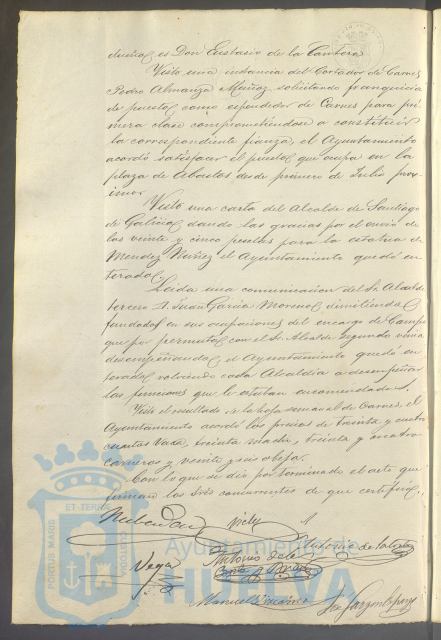 dueño, es Don Eustasio de la Cantera
Visto una instancia del Cortador de Carnes
Pedro Almanza Muñoz solicitando franquicia
de puesto como espendedor de Carnes para pri
mera clase comprometiendose a constituir
la correspondiente fianza, el Ayuntamiento
acordó satisfacer el puesto que ocupa en la
plaza de Abastos desde primero de Julio prox
imo.
Visto una carta del Alcalde de Santiago
de Galicia dando las gracias por el envio de
las veinte y cinco pesetas para la estatua de
Mendez Nuñez el Ayuntamiento quedó en
terado.
Leida una comunicacion del Sr. Alcalde
tercero D. Juan Garcia Moreno dimitiendo
fundado en sus ocupaciones del encargo de Campo
que por permuta con el Sr. Alcalde segundo venia
desempeñando, el Ayuntamiento quedó en
terado volviendo cada Alcaldia a desempeñar
las funciones que le estaban encomendadas.
Visto el resultado de la hoja semanal de Carnes, el
Ayuntamiento acordó los precios de treinta y cuatro
cuartos vaca, treinta macho, treinta y cuatro
carneros y veinte y seis oveja.
Con lo que se dio por terminado el acto que
firman los Sres concurrentes de que certifico.
Vega
Antonio de la
Manuel
José Garzon
PORTUS MARIS
ET TERRE
CUSTODIA
Ayuntamiento de
HUELVA